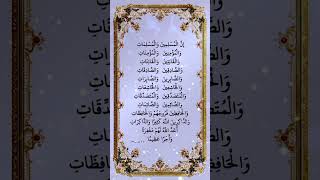 إِنَّ الْمُسْلِمِينَ وَالْمُسْلِمَاتِ
وَالْمُؤْمِنِينَ وَالْمُؤْمِنَاتِ
وَالْقَانِتِينَ وَالْقَانِتَاتِ
وَالصَّادِقِينَ وَالصَّادِقَاتِ
وَالصَّابِرِينَ وَالصَّابِرَاتِ
وَالْخَاشِعِينَ وَالْخَاشِعَاتِ
وَالْمُتَصَدِّقِينَ وَالْمُتَصَدِّقَاتِ
وَالصَّائِمِينَ وَالصَّائِمَاتِ
وَالْحَافِظِينَ فُرُوجَهُمْ وَالْحَافِظَاتِ
وَالذَّاكِرِينَ اللَّهَ كَثِيرًا وَالذَّاكِرَاتِ
أَعَدَّ اللَّهُ لَهُمْ مَغْفِرَةً
وَأَجْرًا عَظِيمًا